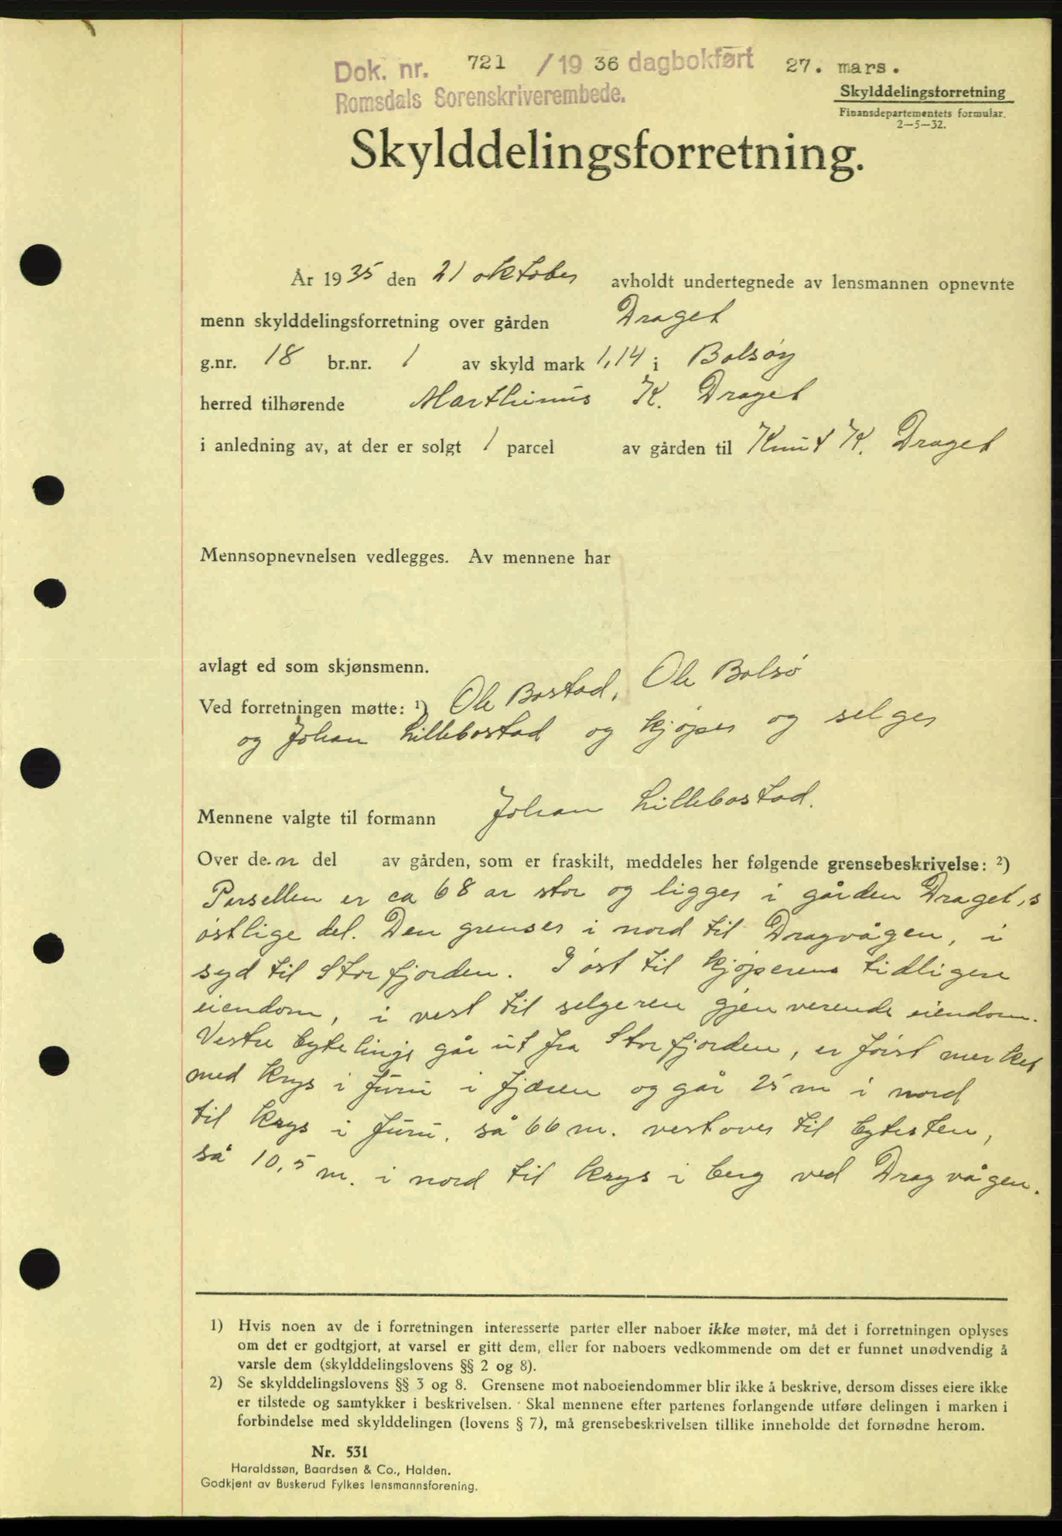 Dok. nr. 721 /1936 dagbokført 27. mars.
Romsdals Sorenskriverembede.
Skylddelingsforretning
Finansdepartementets formular.
2—5—32.
Skylddelingsforretning.
År 1935 den 21 oktober avholdt undertegnede av lensmannen opnevnte
menn skylddelingsforretning over gården Draget
g.nr. 18 br.nr. 1 av skyld mark 1,14 i Bolsøy
herred tilhørende Marthinus K. Draget
i anledning av, at der er solgt 1 parcel av gården til Knut K. Draget
Mennsopnevnelsen vedlegges. Av mennene har
avlagt ed som skjønsmenn.
Ved forretningen møtte: ¹) Ole Bostad, Ole Bolsø
og Johan Lillebostad og kjøper og selger
Mennene valgte til formann Johan Lillebostad.
Over de.n del av gården, som er fraskilt, meddeles her følgende grensebeskrivelse: ²)
Parsellen er ca 68 ar stor og ligger i gården Draget,s
østlige del. Den grenser i nord til Dragvågen, i
syd til Storfjorden. I øst til kjøperens tidligere
eiendom, i vest til selgeren gjenverende eiendom.
Vestre bytelinje går ut fra Storfjorden, er først merket
med krys i furu i fjæren og går 25 m i nord
til krys i furu, så 66 m. vestover til bytesten,
så 10,5 m. i nord til krys i berg ved Dragvågen.
1) Hvis noen av de i forretningen interesserte parter eller naboer ikke møter, må det i forretningen oplyses
om det er godtgjort, at varsel er gitt dem, eller for naboers vedkommende om det er funnet unødvendig å
varsle dem (skylddelingslovens §§ 2 og 8).
2) Se skylddelingslovens §§ 3 og 8. Grensene mot naboeiendommer blir ikke å beskrive, dersom disses eiere ikke
er tilstede og samtykker i beskrivelsen. Skal mennene efter partenes forlangende utføre delingen i marken i
forbindelse med skylddelingen (lovens § 7), må grensebeskrivelsen tillike inneholde det fornødne herom.
Nr. 531
Haraldssøn, Baardsen & Co., Halden.
Godkjent av Buskerud Fylkes lensmannsforening.